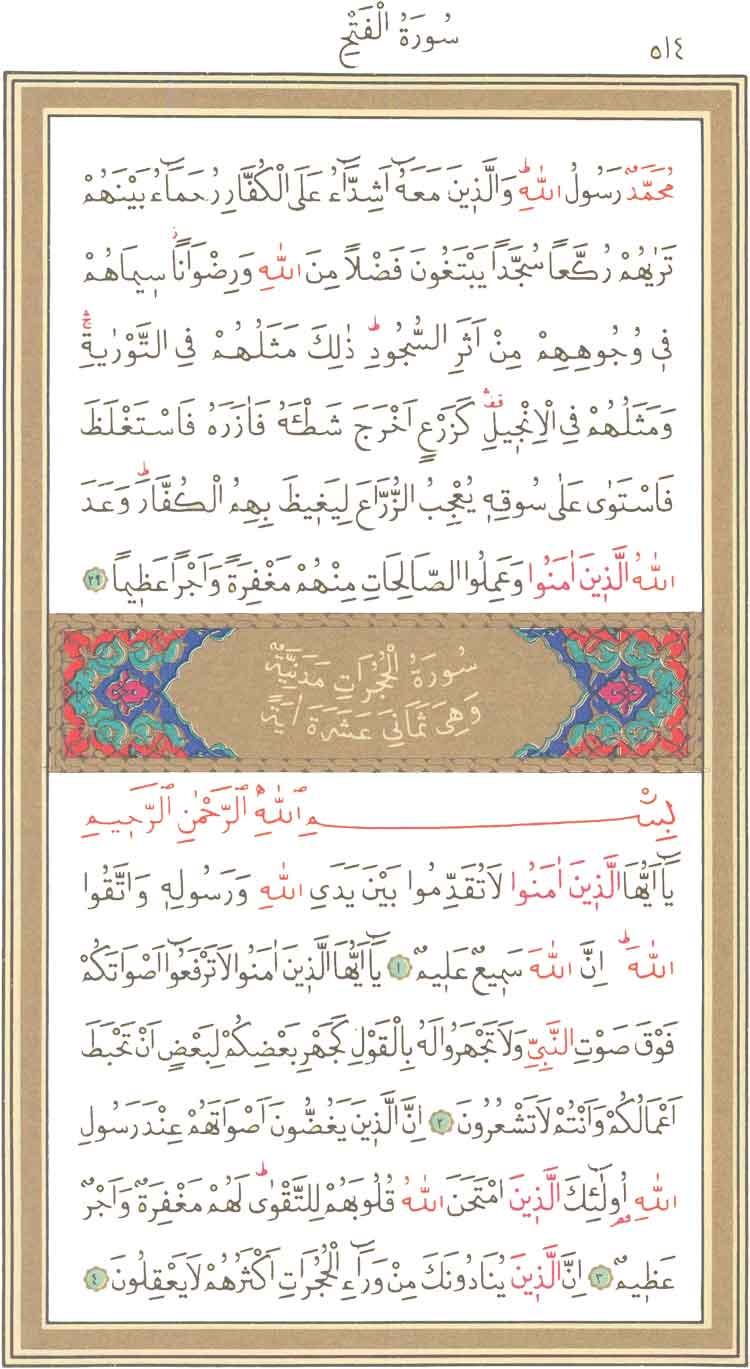 سُورَةُ الْفَتْحِ
٥١٤
مُحَمَّدٌ رَسُولُ اللّٰهِۜ وَالَّذ۪ينَ مَعَهُٓ اَشِدَّٓاءُ عَلَى الْكُفَّارِ رُحَمَٓاءُ بَيْنَهُمْ
تَرٰيهُمْ رُكَّعًا سُجَّدًا يَبْتَغُونَ فَضْلًا مِنَ اللّٰهِ وَرِضْوَانًاۘ س۪يمَاهُمْ
ف۪ي وُجُوهِهِمْ مِنْ اَثَرِ السُّجُودِۜ ذٰلِكَ مَثَلُهُمْ فِي التَّوْرٰيةِۚۛ
وَمَثَلُهُمْ فِي الْاِنْج۪يلِ۠ۛ كَزَرْعٍ اَخْرَجَ شَطْـَٔهُ فَاٰزَرَهُ فَاسْتَغْلَظَ
فَاسْتَوٰى عَلٰى سُوقِه۪ يُعْجِبُ الزُّرَّاعَ لِيَغ۪يظَ بِهِمُ الْكُفَّارَۜ وَعَدَ
اللّٰهُ الَّذ۪ينَ اٰمَنُوا وَعَمِلُوا الصَّالِحَاتِ مِنْهُمْ مَغْفِرَةً وَاَجْرًا عَظ۪يمًا ٢٩
سُورَةُ الْحُجُرَاتِ مَدَنِيَّةٌ
وَهِيَ ثَمَانِيَ عَشَرَةَ اٰيَةً
بِسْمِ اللّٰهِ الرَّحْمٰنِ الرَّح۪يمِ
يَٓا اَيُّهَا الَّذ۪ينَ اٰمَنُوا لَا تُقَدِّمُوا بَيْنَ يَدَيِ اللّٰهِ وَرَسُولِه۪ وَاتَّقُوا
اللّٰهَۜ اِنَّ اللّٰهَ سَم۪يعٌ عَل۪يمٌ ١ يَٓا اَيُّهَا الَّذ۪ينَ اٰمَنُوا لَا تَرْفَعُٓوا اَصْوَاتَكُمْ
فَوْقَ صَوْتِ النَّبِيِّ وَلَا تَجْهَرُوا لَهُ بِالْقَوْلِ كَجَهْرِ بَعْضِكُمْ لِبَعْضٍ اَنْ تَحْبَطَ
اَعْمَالُكُمْ وَاَنْتُمْ لَا تَشْعُرُونَ ٢ اِنَّ الَّذ۪ينَ يَغُضُّونَ اَصْوَاتَهُمْ عِنْدَ رَسُولِ
اللّٰهِ اُو۬لٰٓئِكَ الَّذ۪ينَ امْتَحَنَ اللّٰهُ قُلُوبَهُمْ لِلتَّقْوٰىۜ لَهُمْ مَغْفِرَةٌ وَاَجْرٌ
عَظ۪يمٌ ٣ اِنَّ الَّذ۪ينَ يُنَادُونَكَ مِنْ وَرَٓاءِ الْحُجُرَاتِ اَكْثَرُهُمْ لَا يَعْقِلُونَ ٤